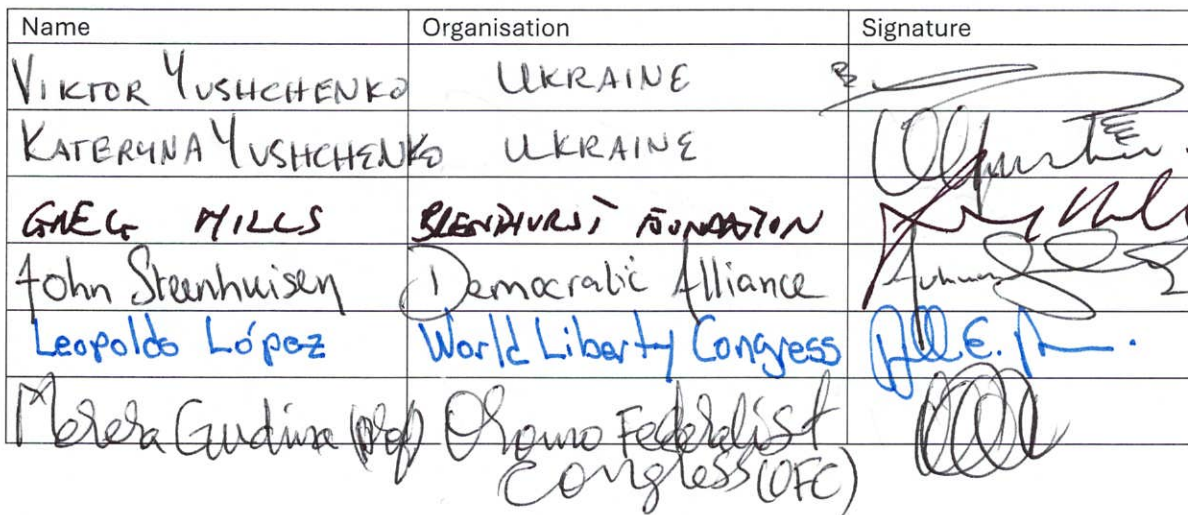 Name Organisation Signature
VIKTOR YUSHCHENKO UKRAINE
KATERYNA YUSHCHENKO UKRAINE
GREG MILLS BRENTHURST FOUNDATION
John Steenhuisen Democratic Alliance
Leopoldo López World Liberty Congress
Merera Gudina (prof) Oromo Federalist
Congress (OFC)